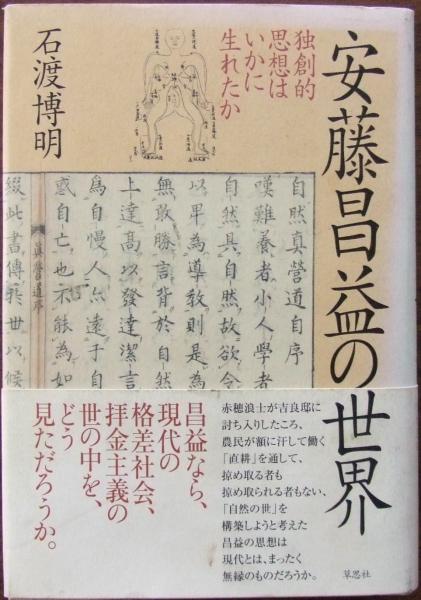 安藤昌益の世界
独創的
思想は
いかに
生れたか
石渡博明
自然真営道自序
嘆難養者小人學者
自然具自然故欲令
以畢為導教則是為
無敢勝言背於自然
上達高以發達潔言
為自慢人尒遠于自
惑自亡也不能為如
眞營道序
綴此書傳於世以候
昌益なら、
現代の
格差社会、
拝金主義の
世の中を、
どう
見ただろうか。
赤穂浪士が吉良邸に
討ち入りしたころ、
農民が額に汗して働く
「直耕」を通して、
掠め取る者も
掠め取られる者もない、
「自然の世」を
構築しようと考えた
昌益の思想は
現代とは、まったく
無縁のものだろうか。
草思社